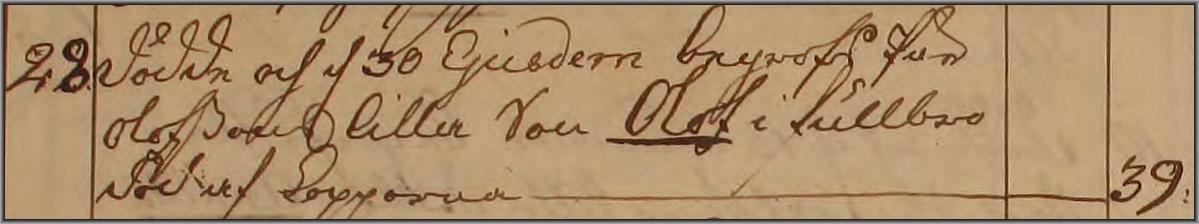 28. Dödde och d 30 Ejusdem begrofs Jan
Olofssons liller Son Olof i Kullbro
död af Kopporna 39.